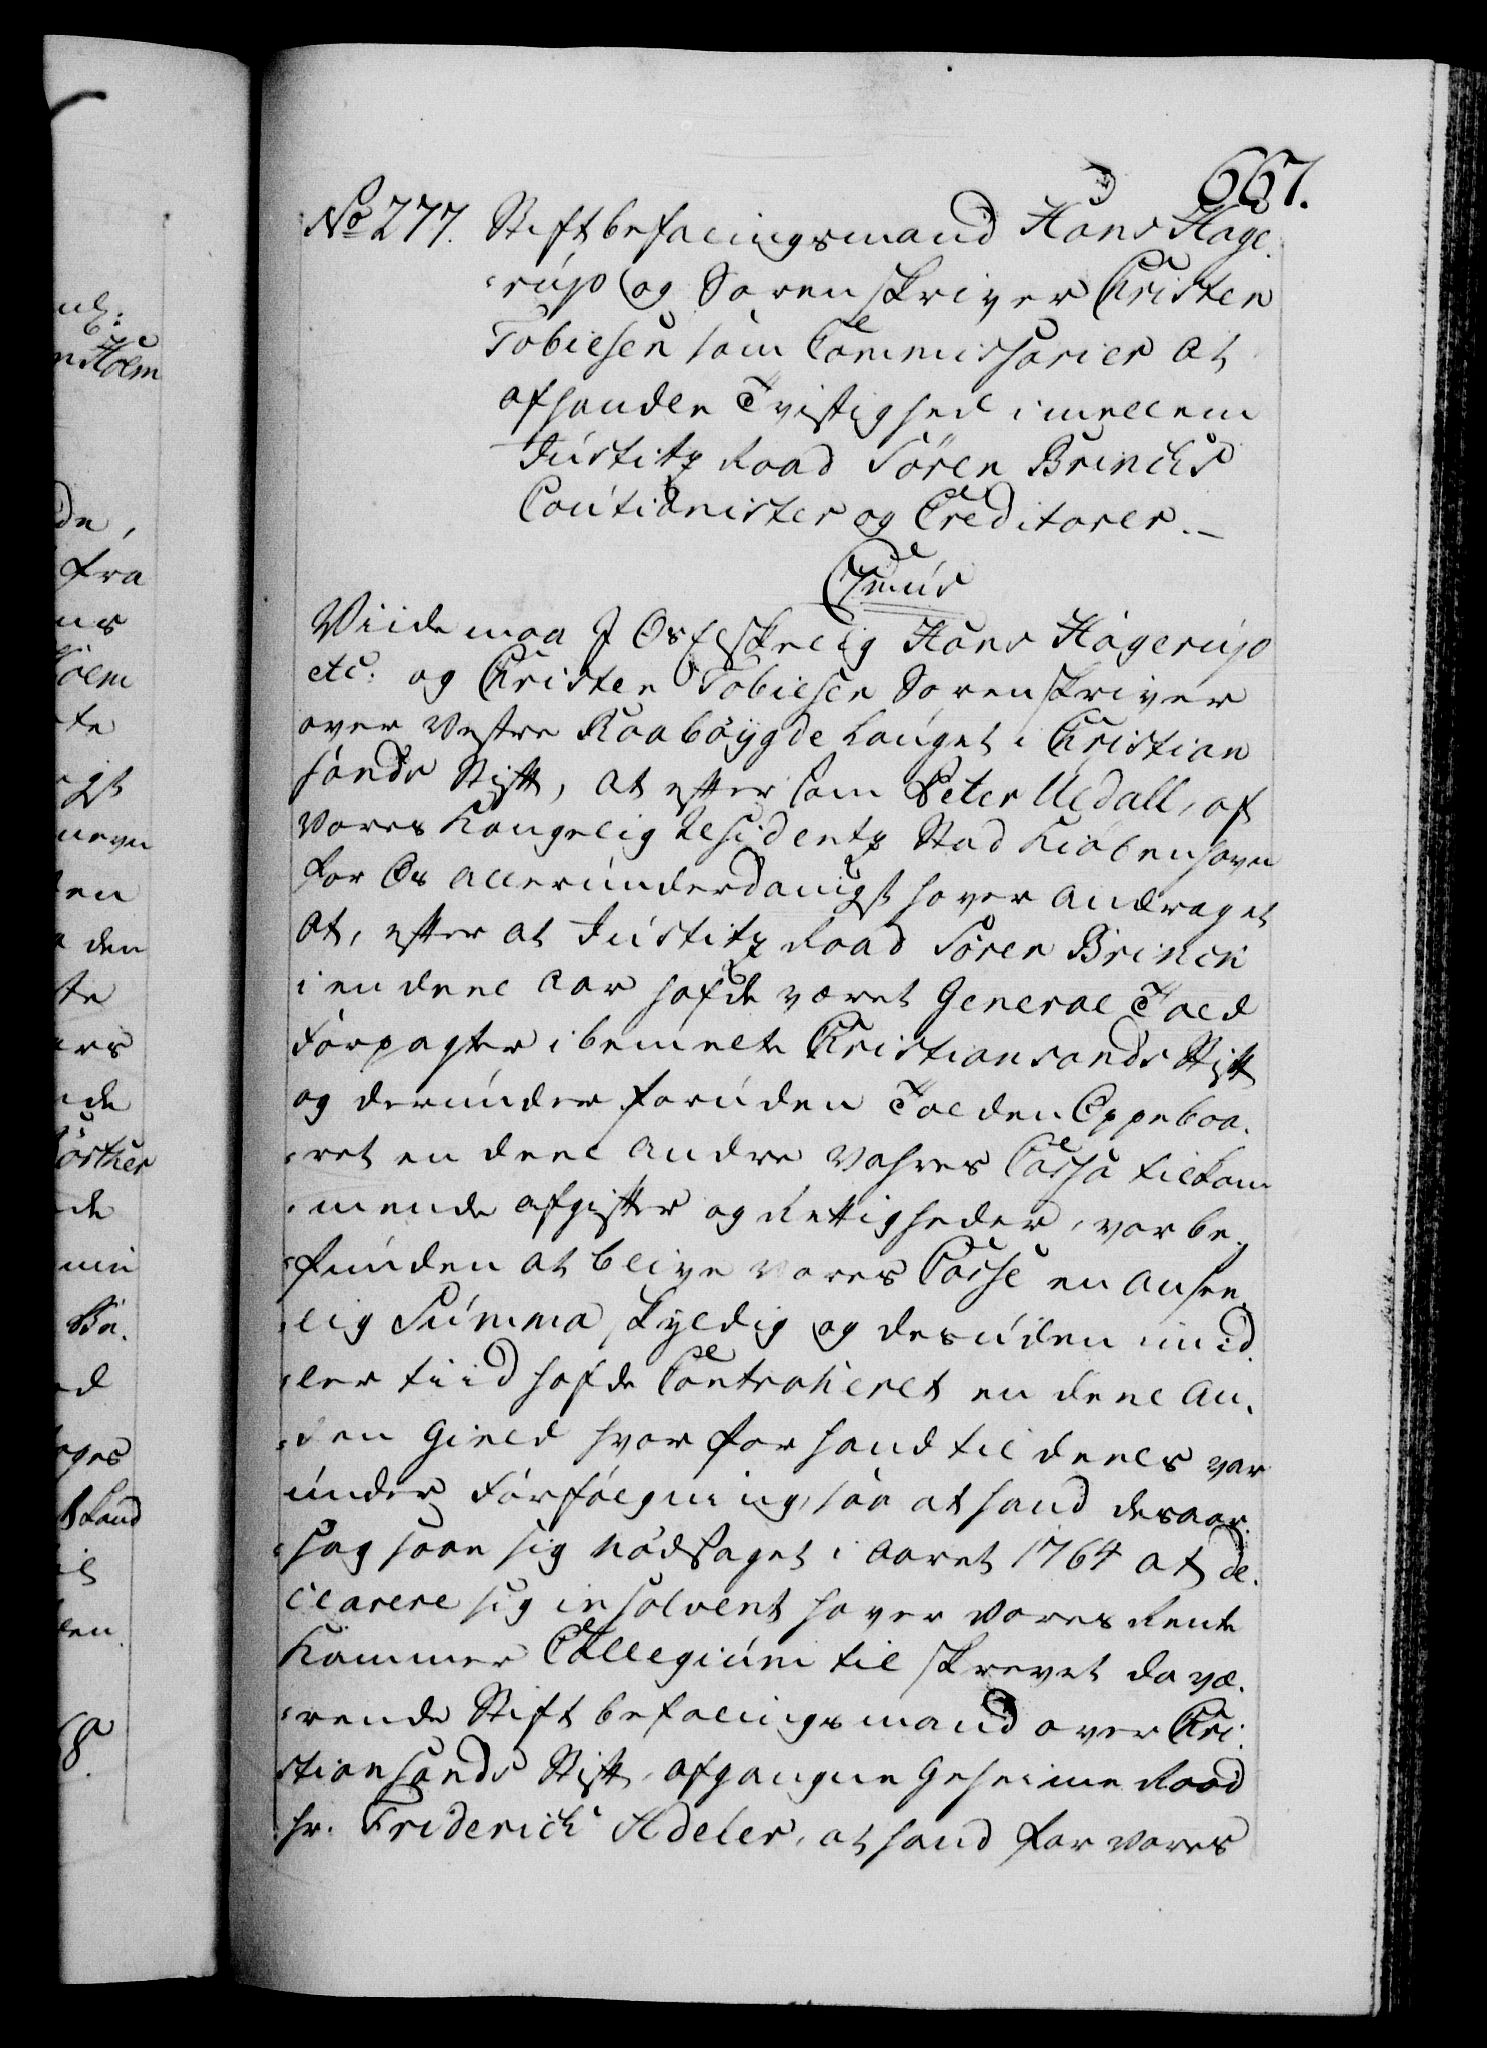 667.
No 277. Stiftbefalingsmand Hans Hage-
:rup og Sorenskriver Christen
Tobiesen som Commissarier at
afhandle Tvistighed imellem
Justitz Raad Sören Brincks
Cautionister og Creditorer.–
C7mus
Viide maa I Os Elskelig Hans Hagerup
etc: og Christen Tobiesen Sorenskriver
over Vestre Raabøygdelauget i Christian
sands Stift, at efter som Peter Uldall, af
Vores Kongelig Residentz Stad Kiøbenhavn
for Os allerunderdanigst haver andraget
at, efter at Justitz Raad Sören Brinck
i en deel Aar hafde været General Told
Forpagter i bemelte Christiansands Stift
og derunder foruden Tolden Oppebaa-
:ret en deel andre Vahres Cassa tilkom
:mende afgifter og Rettigheder, var be-
:funden at blive Vores Casse en ansee-
:lig Summa skyldig og desuden imid-
:ler tiid hafde Contraheret en deel An-
:den Gield hvor for hand til deels var
under Forfølgning, saa at hand desaar-
:sag saae sig nødsaget i Aaret 1764 at de-
:clarere sig insolvent haver Vores Rente
Kammer Collegium til skrevet da væ-
:rende Stiftbefalingsmand over Chri-
stiansands Stift afgangne Geheime Raad
hr. Friderich Adeler, at hand for Vores
n Holm
de,
fra
ns
Holm
te
en
den
te
ers
de
de
Bn.
ed
Land
il
den